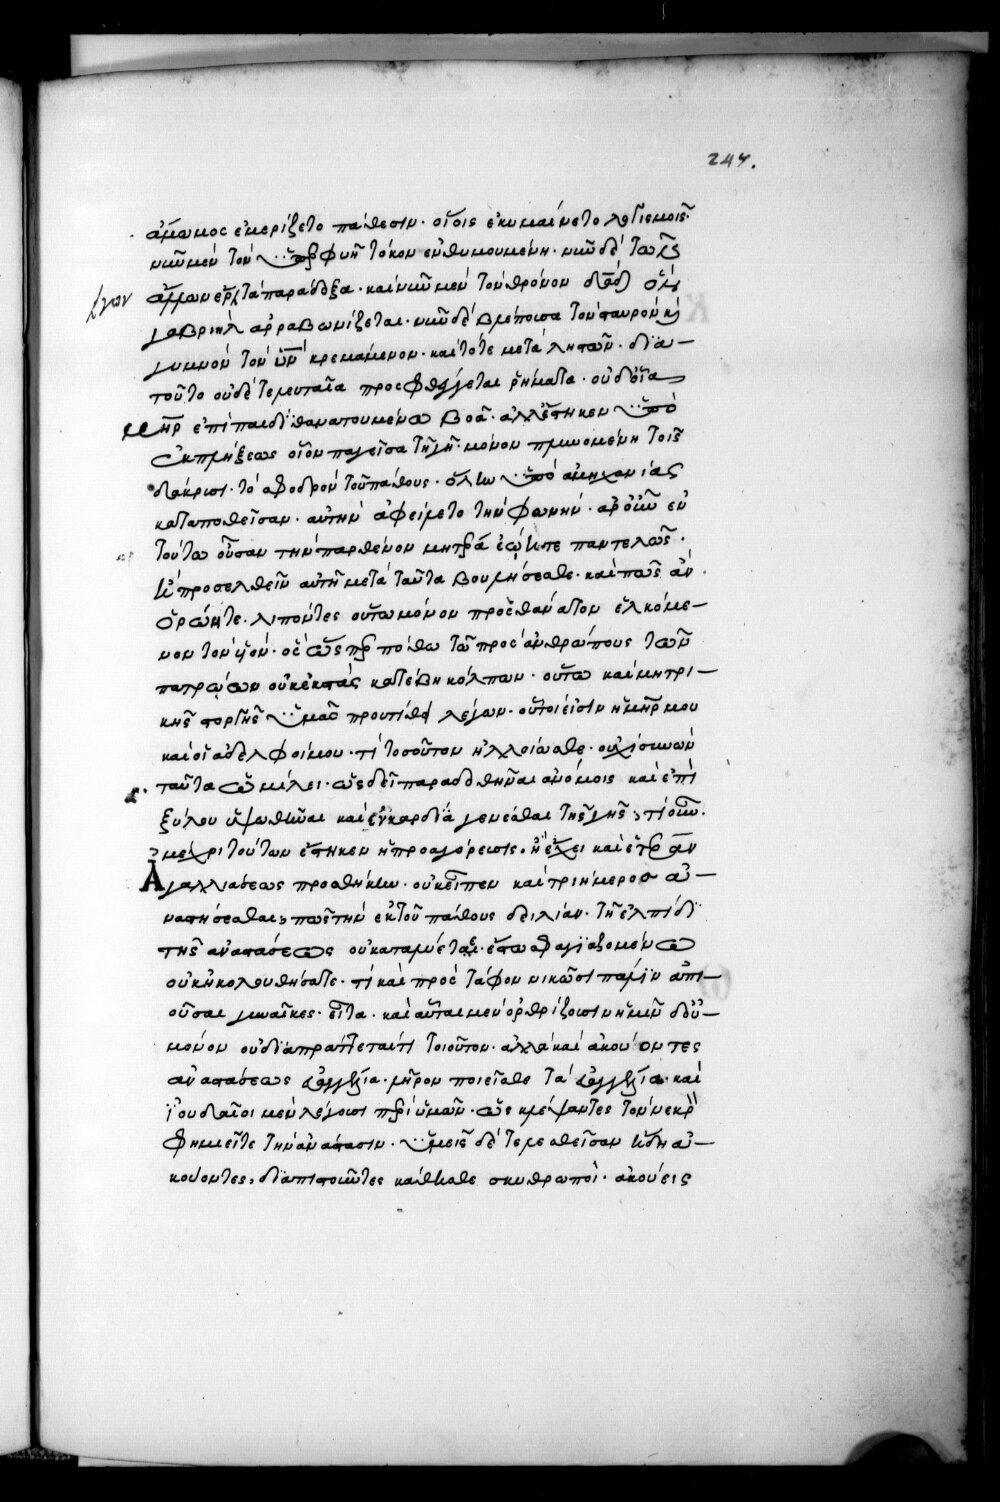 247.
ἄμωμος ἐμερίζετο πάθεσιν· οἵοις ἐκυμαίνετο λογισμοῖς·
νῦν μὲν τὸν ὑπερφυῆ τόκον ἐνθυμουμένη· νῦν δὲ τῶν
ἄλλων ἔργων τὰ παράδοξα· καὶ νῦν μὲν τὸν θρόνον δαδ ὃν
γαβριὴλ ἀρραβωνίζεται· νῦν δὲ βλέπουσα τὸν σταυρὸν καὶ
γυμνὸν τὸν υν κρεμάμενον· καὶ τότε μετὰ ληστῶν· δϊα-
τοῦτο οὐδὲ τελευταῖα προσφθέγγεται ῥήματα· οὐδ οἷα
μηρ ἐπὶ παιδὶ θανατουμένω βοᾶ· ἀλλ ἕστηκεν ὑπὸ
ἐκπλήξεως οἷον παγεῖσα τῆ γῆ· μόνον πλυνομένη τοῖς
δάκρυσι· τὸ σφοδρὸν τοῦ πάθους· ὅλην ὑπὸ ἀμηχανίας
καταποθεῖσαν· αὐτὴν ἀφείλετο τὴν φωνήν· ἆρ οὖν ἐν
τούτω οὖσαν τὴν παρθένον μητέρα ἐῴκατε παντελῶς·
ἢ προσελθεῖν αὐτῆ μετὰ ταῦτα βουλήσεσθε· καὶ πῶς ἂν
ὁρῶντε· λιπόντες οὕτω μόνον πρὸς θάνατον ἑλκόμε-
νον τὸν υἱόν· ὃς ὥσπερ πόθω τῶ πρὸς ἀνθρώπους τῶν
πατρῴων οὐκ ἐκστὰς κατέβη κόλπων· οὕτω καὶ μητρι-
κῆς στοργῆς ὑμᾶς προὐτίθει λέγων· οὗτοι εἰσὶν ἡ μηρ μου
καὶ οἱ ἀδελφοί μου· τί τοσοῦτον ἠλλοίωσθε· οὐχ ὑμῖν
ταῦτα ὡμίλει· ὡς δεῖ παραδοθῆναι ἀνόμοις καὶ ἐπὶ
ξύλου ὑψωθῆναι καὶ ἐν καρδϊᾳ γενέσθαι τῆς γῆς· τί οὖν·
μέχρι τούτων ἕστηκεν ἡ προαγόρευσις· ἢ ἔχει καὶ ἑτέραν
Ἀγαλλιάσεως προσθήκην· οὐκ εἶπεν καὶ τριήμερος ἀ-
ναστήσεσθαι· πῶς τὴν ἐκ τοῦ πάθους δειλίαν· τῆ ἐλπίδϊ
τῆς ἀναστάσεως οὐ καταλύεται· ἔστω σφαγϊαζομένω
οὐκ ἠκολουθήσατε· τί καὶ πρὸς τάφον νικῶσι πάλϊν ἀπι-
οῦσαι γυναῖκες· εἶτα· καὶ αὗται μὲν ὀρθρίζουσιν ἡμῖν δὲ οὐ-
μόνον οὐ διαπράττεταί τι τοιοῦτον· ἀλλὰ καὶ ἀκούοντες
ἀναστάσεως εὐαγγέλια· λῆρον ποιεῖσθε τὰ εὐαγγέλια· καὶ
ϊουδαῖοι μὲν λέγουσι περὶ ὑμῶν· ὡς κλέψαντες τὸν νεκρὸν
φημεῖτε τὴν ἀνάστασιν· ὑμεῖς δὲ τελεσθεῖσαν ἤδη ἀ-
κούοντες· διαπιστοῦντες κάθησθε σκυθρωποί· ἀκούεις